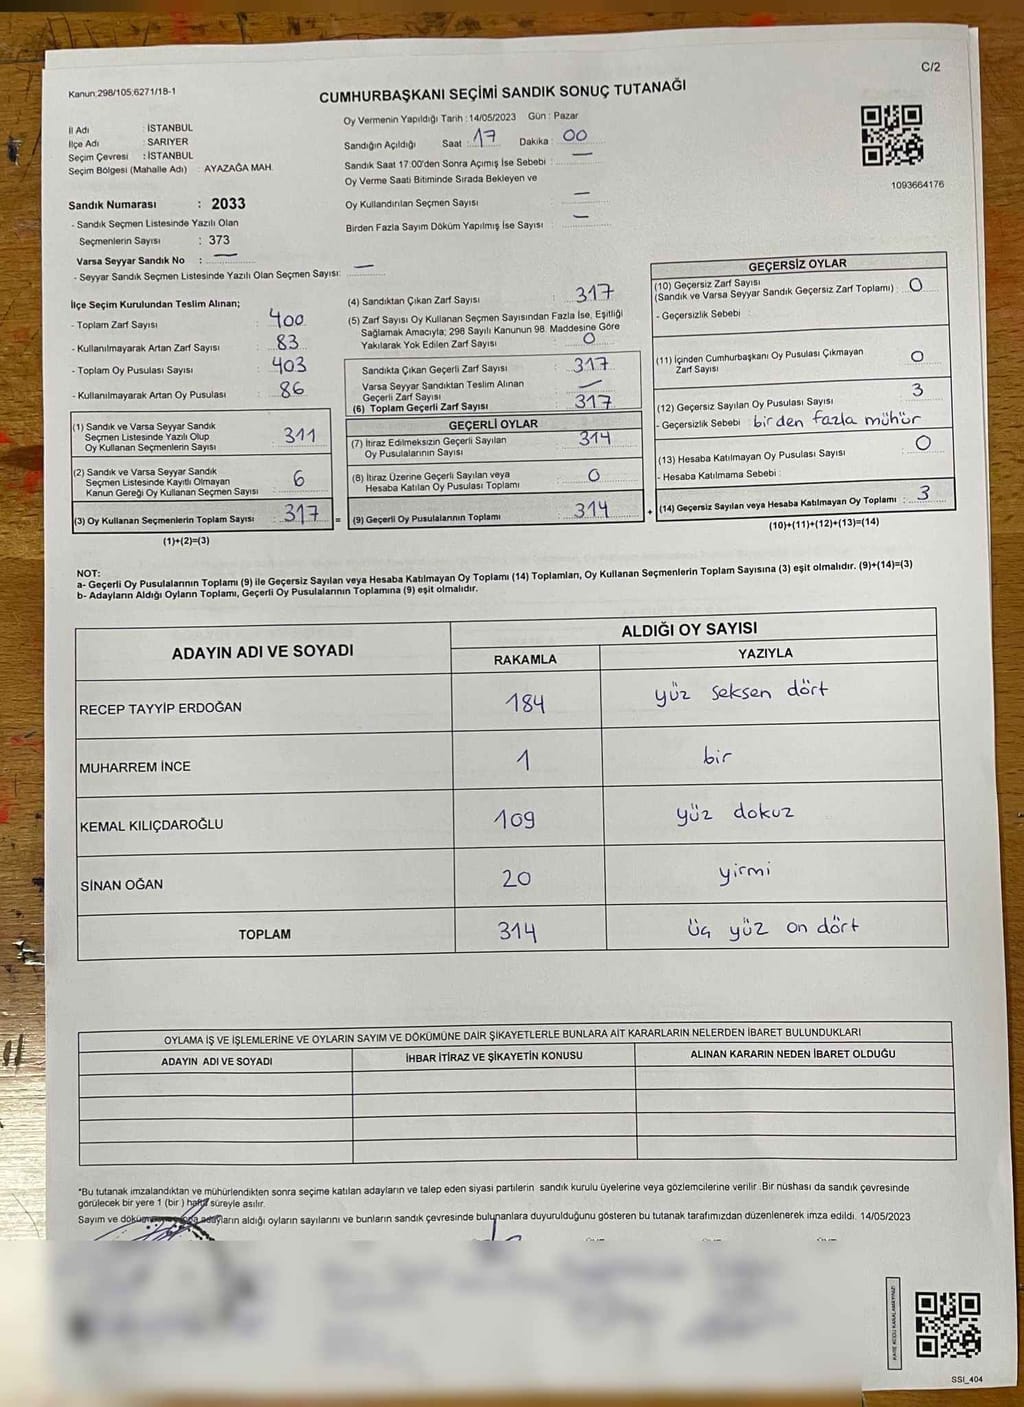 C/2
Kanun:298/105,6271/18-1
CUMHURBAŞKANI SEÇİMİ SANDIK SONUÇ TUTANAĞI
Oy Vermenin Yapıldığı Tarih : 14/05/2023 Gün : Pazar
İl Adı : İSTANBUL
İlçe Adı : SARIYER
Seçim Çevresi : İSTANBUL
Seçim Bölgesi (Mahalle Adı) : AYAZAĞA MAH.
Sandığın Açıldığı Saat : 17 Dakika : 00
Sandık Saat 17:00'den Sonra Açımış İse Sebebi : —
Oy Verme Saati Bitiminde Sırada Bekleyen ve
Oy Kullandırılan Seçmen Sayısı : —
Birden Fazla Sayım Döküm Yapılmış İse Sayısı : —
1093664176
Sandık Numarası : 2033
- Sandık Seçmen Listesinde Yazılı Olan
Seçmenlerin Sayısı : 373
Varsa Seyyar Sandık No : —
- Seyyar Sandık Seçmen Listesinde Yazılı Olan Seçmen Sayısı: —
İlçe Seçim Kurulundan Teslim Alınan;
- Toplam Zarf Sayısı : 400
- Kullanılmayarak Artan Zarf Sayısı : 83
- Toplam Oy Pusulası Sayısı : 403
- Kullanılmayarak Artan Oy Pusulası : 86
(1) Sandık ve Varsa Seyyar Sandık
Seçmen Listesinde Yazılı Olup
Oy Kullanan Seçmenlerin Sayısı : 311
(2) Sandık ve Varsa Seyyar Sandık
Seçmen Listesinde Kayıtlı Olmayan
Kanun Gereği Oy Kullanan Seçmen Sayısı : 6
(3) Oy Kullanan Seçmenlerin Toplam Sayısı : 317 =
(1)+(2)=(3)
(4) Sandıktan Çıkan Zarf Sayısı : 317
(5) Zarf Sayısı Oy Kullanan Seçmen Sayısından Fazla İse, Eşitliği
Sağlamak Amacıyla; 298 Sayılı Kanunun 98. Maddesine Göre
Yakılarak Yok Edilen Zarf Sayısı : 0
Sandıkta Çıkan Geçerli Zarf Sayısı : 317
Varsa Seyyar Sandıktan Teslim Alınan
Geçerli Zarf Sayısı : —
(6) Toplam Geçerli Zarf Sayısı : 317
GEÇERLİ OYLAR
(7) İtiraz Edilmeksizin Geçerli Sayılan
Oy Pusulalarının Sayısı : 314
(8) İtiraz Üzerine Geçerli Sayılan veya
Hesaba Katılan Oy Pusulası Toplamı : 0
(9) Geçerli Oy Pusulalarının Toplamı : 314 +
GEÇERSİZ OYLAR
(10) Geçersiz Zarf Sayısı
(Sandık ve Varsa Seyyar Sandık Geçersiz Zarf Toplamı) : 0
- Geçersizlik Sebebi :
(11) İçinden Cumhurbaşkanı Oy Pusulası Çıkmayan
Zarf Sayısı : 0
(12) Geçersiz Sayılan Oy Pusulası Sayısı : 3
- Geçersizlik Sebebi : birden fazla mühür
(13) Hesaba Katılmayan Oy Pusulası Sayısı : 0
- Hesaba Katılmama Sebebi :
(14) Geçersiz Sayılan veya Hesaba Katılmayan Oy Toplamı : 3
(10)+(11)+(12)+(13)=(14)
NOT:
a- Geçerli Oy Pusulalarının Toplamı (9) ile Geçersiz Sayılan veya Hesaba Katılmayan Oy Toplamı (14) Toplamları, Oy Kullanan Seçmenlerin Toplam Sayısına (3) eşit olmalıdır. (9)+(14)=(3)
b- Adayların Aldığı Oyların Toplamı, Geçerli Oy Pusulalarının Toplamına (9) eşit olmalıdır.
ADAYIN ADI VE SOYADI ALDIĞI OY SAYISI
RAKAMLA YAZIYLA
RECEP TAYYİP ERDOĞAN 184 yüz seksen dört
MUHARREM İNCE 1 bir
KEMAL KILIÇDAROĞLU 109 yüz dokuz
SİNAN OĞAN 20 yirmi
TOPLAM 314 üç yüz on dört
OYLAMA İŞ VE İŞLEMLERİNE VE OYLARIN SAYIM VE DÖKÜMÜNE DAİR ŞİKAYETLERLE BUNLARA AİT KARARLARIN NELERDEN İBARET BULUNDUKLARI
ADAYIN ADI VE SOYADI İHBAR İTİRAZ VE ŞİKAYETİN KONUSU ALINAN KARARIN NEDEN İBARET OLDUĞU
*Bu tutanak imzalandıktan ve mühürlendikten sonra seçime katılan adayların ve talep eden siyasi partilerin sandık kurulu üyelerine veya gözlemcilerine verilir. Bir nüshası da sandık çevresinde
görülecek bir yere 1 (bir) hafta süreyle asılır.
Sayım ve döküm adayların aldığı oyların sayılarını ve bunların sandık çevresinde bulunanlara duyurulduğunu gösteren bu tutanak tarafımızdan düzenlenerek imza edildi. 14/05/2023
SSI_404